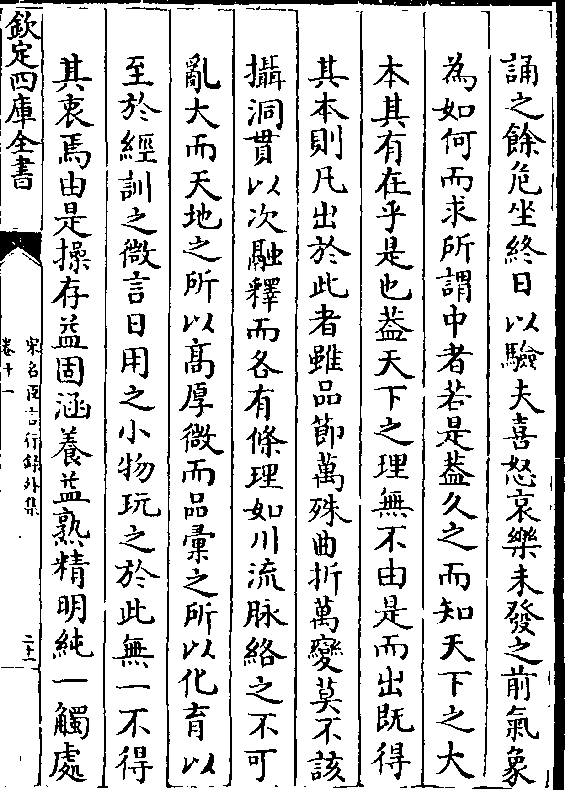 誦之餘危坐終日以驗夫喜怒哀樂未發之前氣象
為如何而求所謂中者若是葢久之而知天下之大
本其有在乎是也葢天下之理無不由是而出既得
其本則凡出於此者雖品節萬殊曲折萬變莫不該
攝洞貫以次融釋而各有條理如川流脉絡之不可
亂大而天地之所以髙厚微而品彚之所以化育以
至於經訓之微言日用之小物玩之於此無一不得
其衷焉由是操存益固涵養益熟精明純一觸處
欽定四庫全書
宋名臣言行録外集
卷十一
二十二